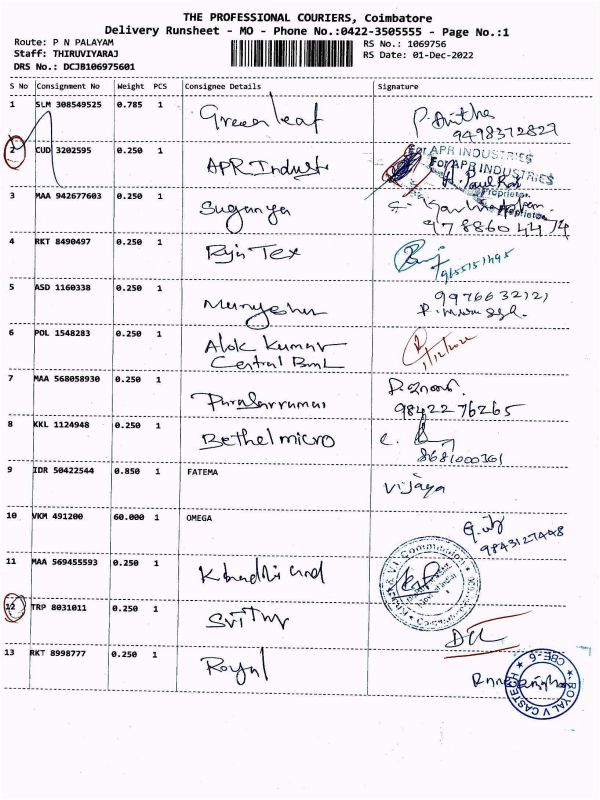 THE PROFESSIONAL COURIERS, Coimbatore
Delivery Runsheet - MO - Phone No.:0422-3505555 - Page No.:1
Route: P N PALAYAM
RS No.: 1069756
Staff: THIRUVIYARAJ
RS Date: 01-Dec-2022
DRS No.: DCJB106975601
S No Consignment No Weight PCS Consignee Details Signature
1 SLM 308549525 0.785 1 Green leaf
9498372827
2 CUD 3202595 0.250 1 APR Indust
For APR INDUSTRIES
For APR INDUSTRIES
Proprietor
Proprietor
3 MAA 942677603 0.250 1 Suganya
9788604474
4 RKT 8490497 0.250 1 Raju Tex
5 ASD 1160338 0.250 1
9976632121
6 POL 1548283 0.250 1 Alok Kumar
Central Bank
1/12/2022
7 MAA 568058930 0.250 1
9842276265
8 KKL 1124948 0.250 1 Bethel micro
8681000361
9 IDR 50422544 0.850 1 FATEMA
Vijaya
10 VKM 491200 60.000 1 OMEGA
9843127448
11 MAA 569455593 0.250 1
12 TRP 8031011 0.250 1
13 RKT 8998777 0.250 1 Royal
CBE-6